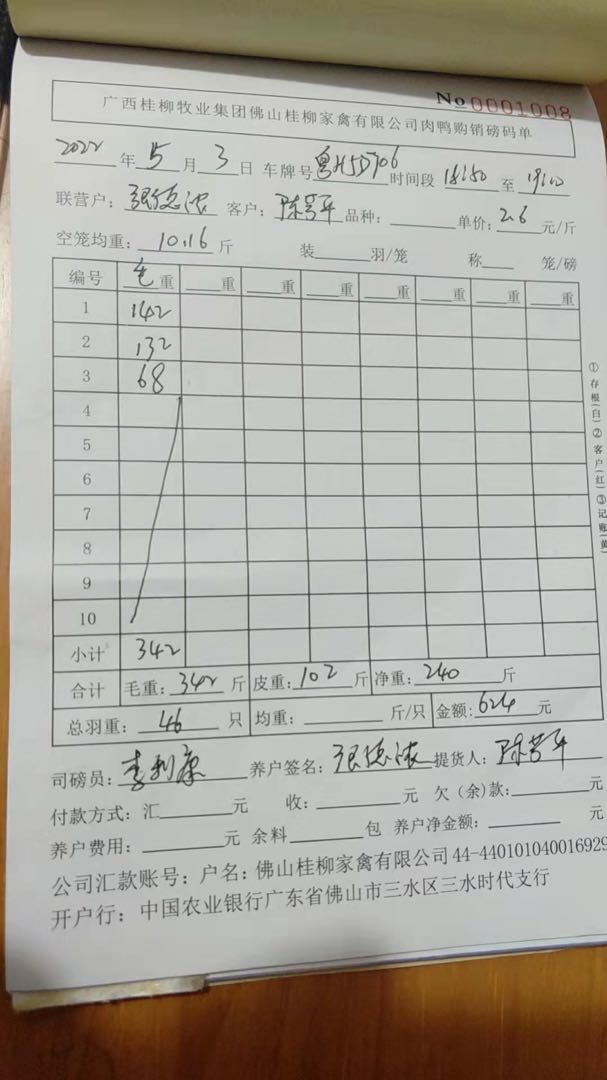 No 0001008
广西桂柳牧业集团佛山桂柳家禽有限公司肉鸭购销磅码单
2022 年 5 月 3 日 车牌号 粤H5D706 时间段 18:50 至 19:00
联营户: 张德浓 客户: 陈芳平 品种: 单价: 2.6 元/斤
空笼均重: 10.16 斤 装 羽/笼 称 笼/磅
编号 毛重 重 重 重 重 重 重 重
1 142
2 132
3 68
4
5
6
7
8
9
10
小计 342
合计 毛重: 342 斤 皮重: 102 斤 净重: 240 斤
总羽重: 46 只 均重: 斤/只 金额: 624 元
司磅员: 李利康 养户签名: 张德浓 提货人: 陈芳平
付款方式: 汇 元 收: 元 欠(余)款: 元
养户费用: 元 余料 包 养户净金额: 元
公司汇款账号: 户名: 佛山桂柳家禽有限公司 44-440101040016929
开户行: 中国农业银行广东省佛山市三水区三水时代支行
①存根(白)②客户(红)③记账(黄)